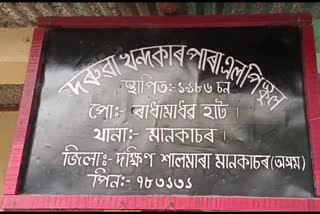 দৰুৱা খন্দকাৰ পাৰা এল পি স্কুল
স্থাপিত:- ১৯৮৬ চন
পো:- ৰাধামাধৱ হাট ।
থানা:- মানকাচৰ ।
জিলা:- দক্ষিণ শালমাৰা মানকাচৰ (অসম)
পিন:- ৭৮৩১৩১